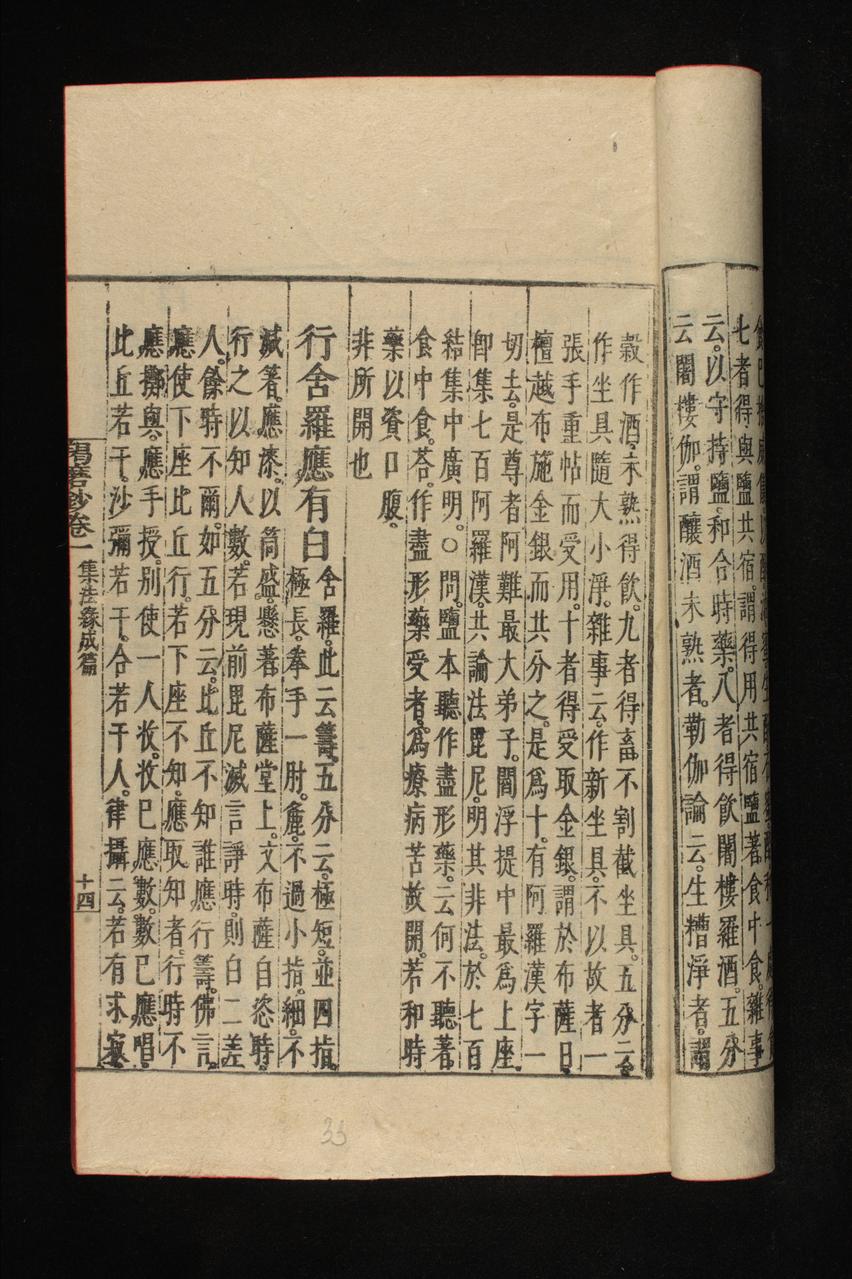 七者得與鹽共宿。謂得用共宿鹽著食中食。雜事
云。以守持鹽。和合時藥。八者得飲闍樓羅酒。五分
云闍樓伽。謂釀酒未熟者。勒伽論云。生糟淨者。謂
穀作酒。未熟得飲。九者得畜不割截坐具。五分云
作坐具隨大小淨。雜事云。作新坐具。不以故者一
張手重帖而受用。十者得受取金銀。謂於布薩日。
檀越布施金銀而共分之。是為十。有阿羅漢字一
切去。是尊者阿難最大弟子。閻浮提中最為上座。
即集七百阿羅漢。共論法毘尼。明其非法。於七百
結集中廣明。○問。鹽本聽作盡形藥。云何不聽著
食中食。荅。作盡形藥受者。為療病苦故開。若和時
藥以資口腹。
非所開也
行舍羅應有白
舍羅。此云籌。五分云。極短。並四指。
極長。拳手一肘。麁。不過小指。細。不
減箸。應漆。以筒盛。懸著布薩堂上。文布薩自恣時。
行之以知人數。若現前毘尼滅言諍時。則白二差
人。餘時不爾。如五分云。比丘不知誰應行籌。佛言。
應使下座比丘行。若下座不知。應取知者。行時不
應擲與。應手授。別使一人收。收已應數。數已應唱。
比丘若干。沙彌若干。合若干人。律攝云。若有求寂
羯磨鈔卷一
集法緣成篇
十四
33